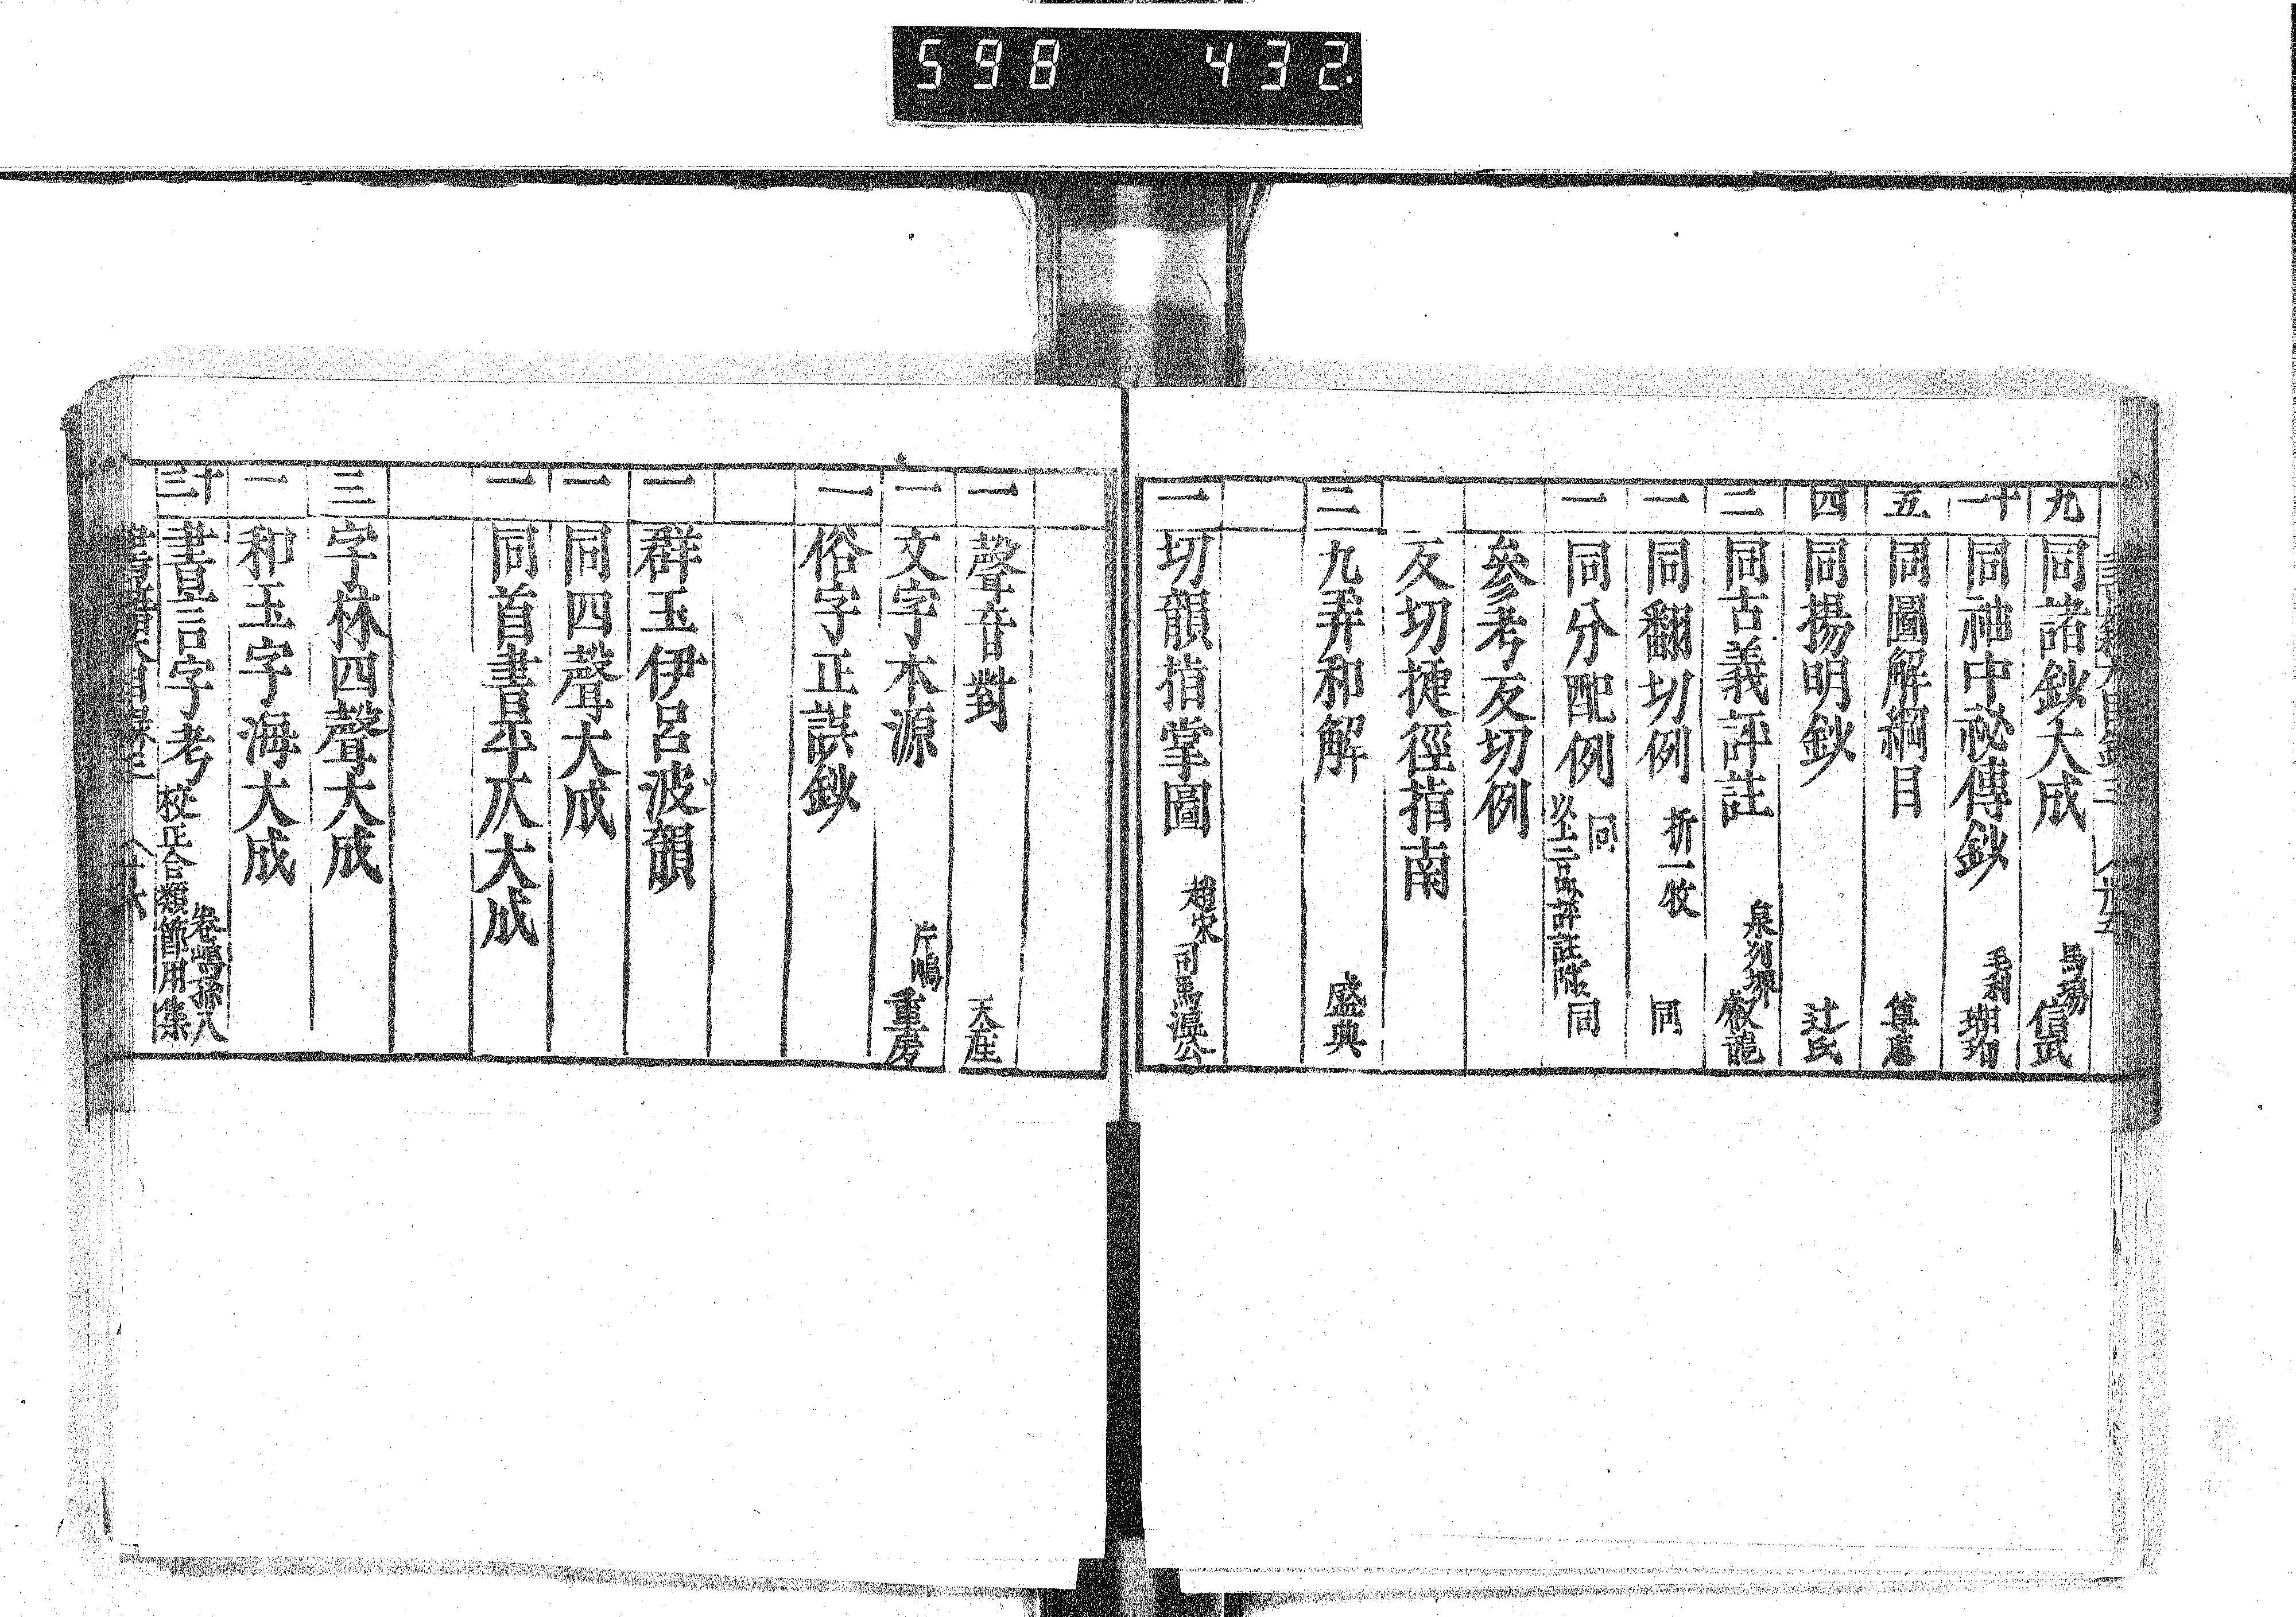 598 432
九 同諸鈔大成 馬場信武
十一 同袖中祕傳鈔 毛利瑚珀
五 同圖解綱目 尊𢈘
四 同揚明鈔 辻氏
二 同古義評註 泉列堺 叡龍
一 同翻切例 折一牧 同
一 同分配例 同 以上二言古義評註附 同
參考反切例
反切捷徑指南
三 九弄和解 盛典
一 切韻指掌圖 趙宋 司馬溫公
一 聲音對 天產
一 文字本源 片嶋重房
一 俗字正誤鈔
一 群玉伊呂波韻
一 同四聲大成
一 同首書平仄大成
三 字林四聲大成
一 和玉字海大成
十三 書言字考 卷嶋孫八 校正合類節用集